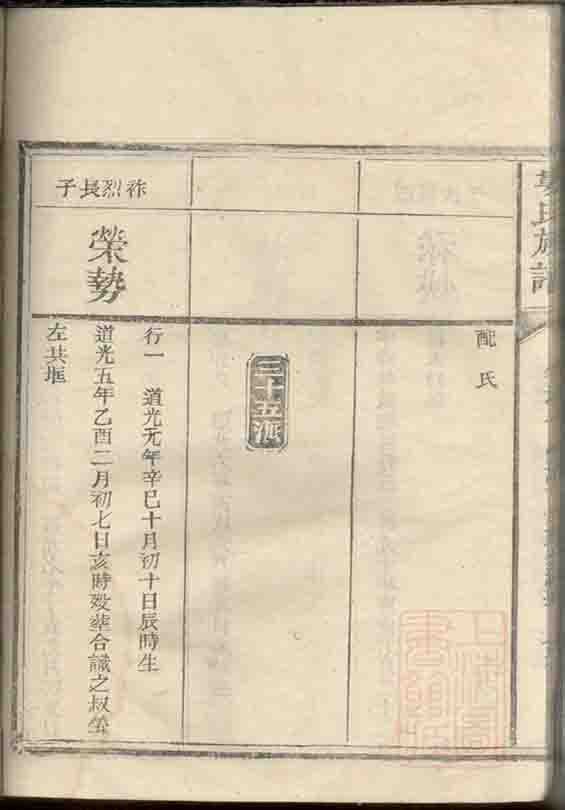 氏族譜
配氏
三十五派
祚烈長子
榮勢
行一 道光元年辛巳十月初十日辰時生
道光五年乙酉二月初七日亥時歿葬合議之叔塋
左共堰
上海圖書館藏